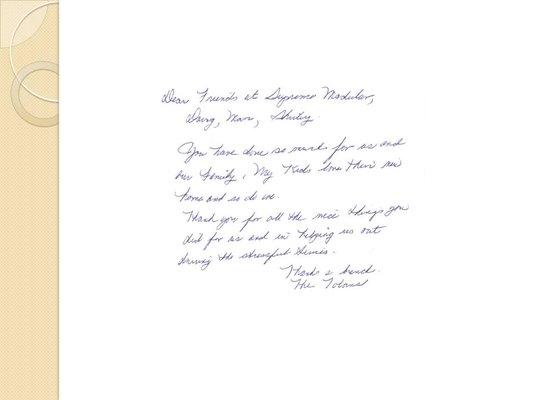 Dear Friends at Supreme Modular,
Doug, Marv, Shirley
You have done so much for us and
our family, My Kids love their new
home and so do we.
Thank you for all the nice things you
did for us and in helping us out
during the stressful times.
Thanks a bunch.
The